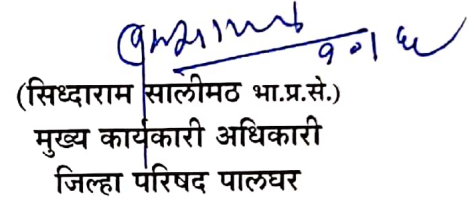 १०/६
(सिध्दाराम सालीमठ भा.प्र.से.)
मुख्य कार्यकारी अधिकारी
जिल्हा परिषद पालघर